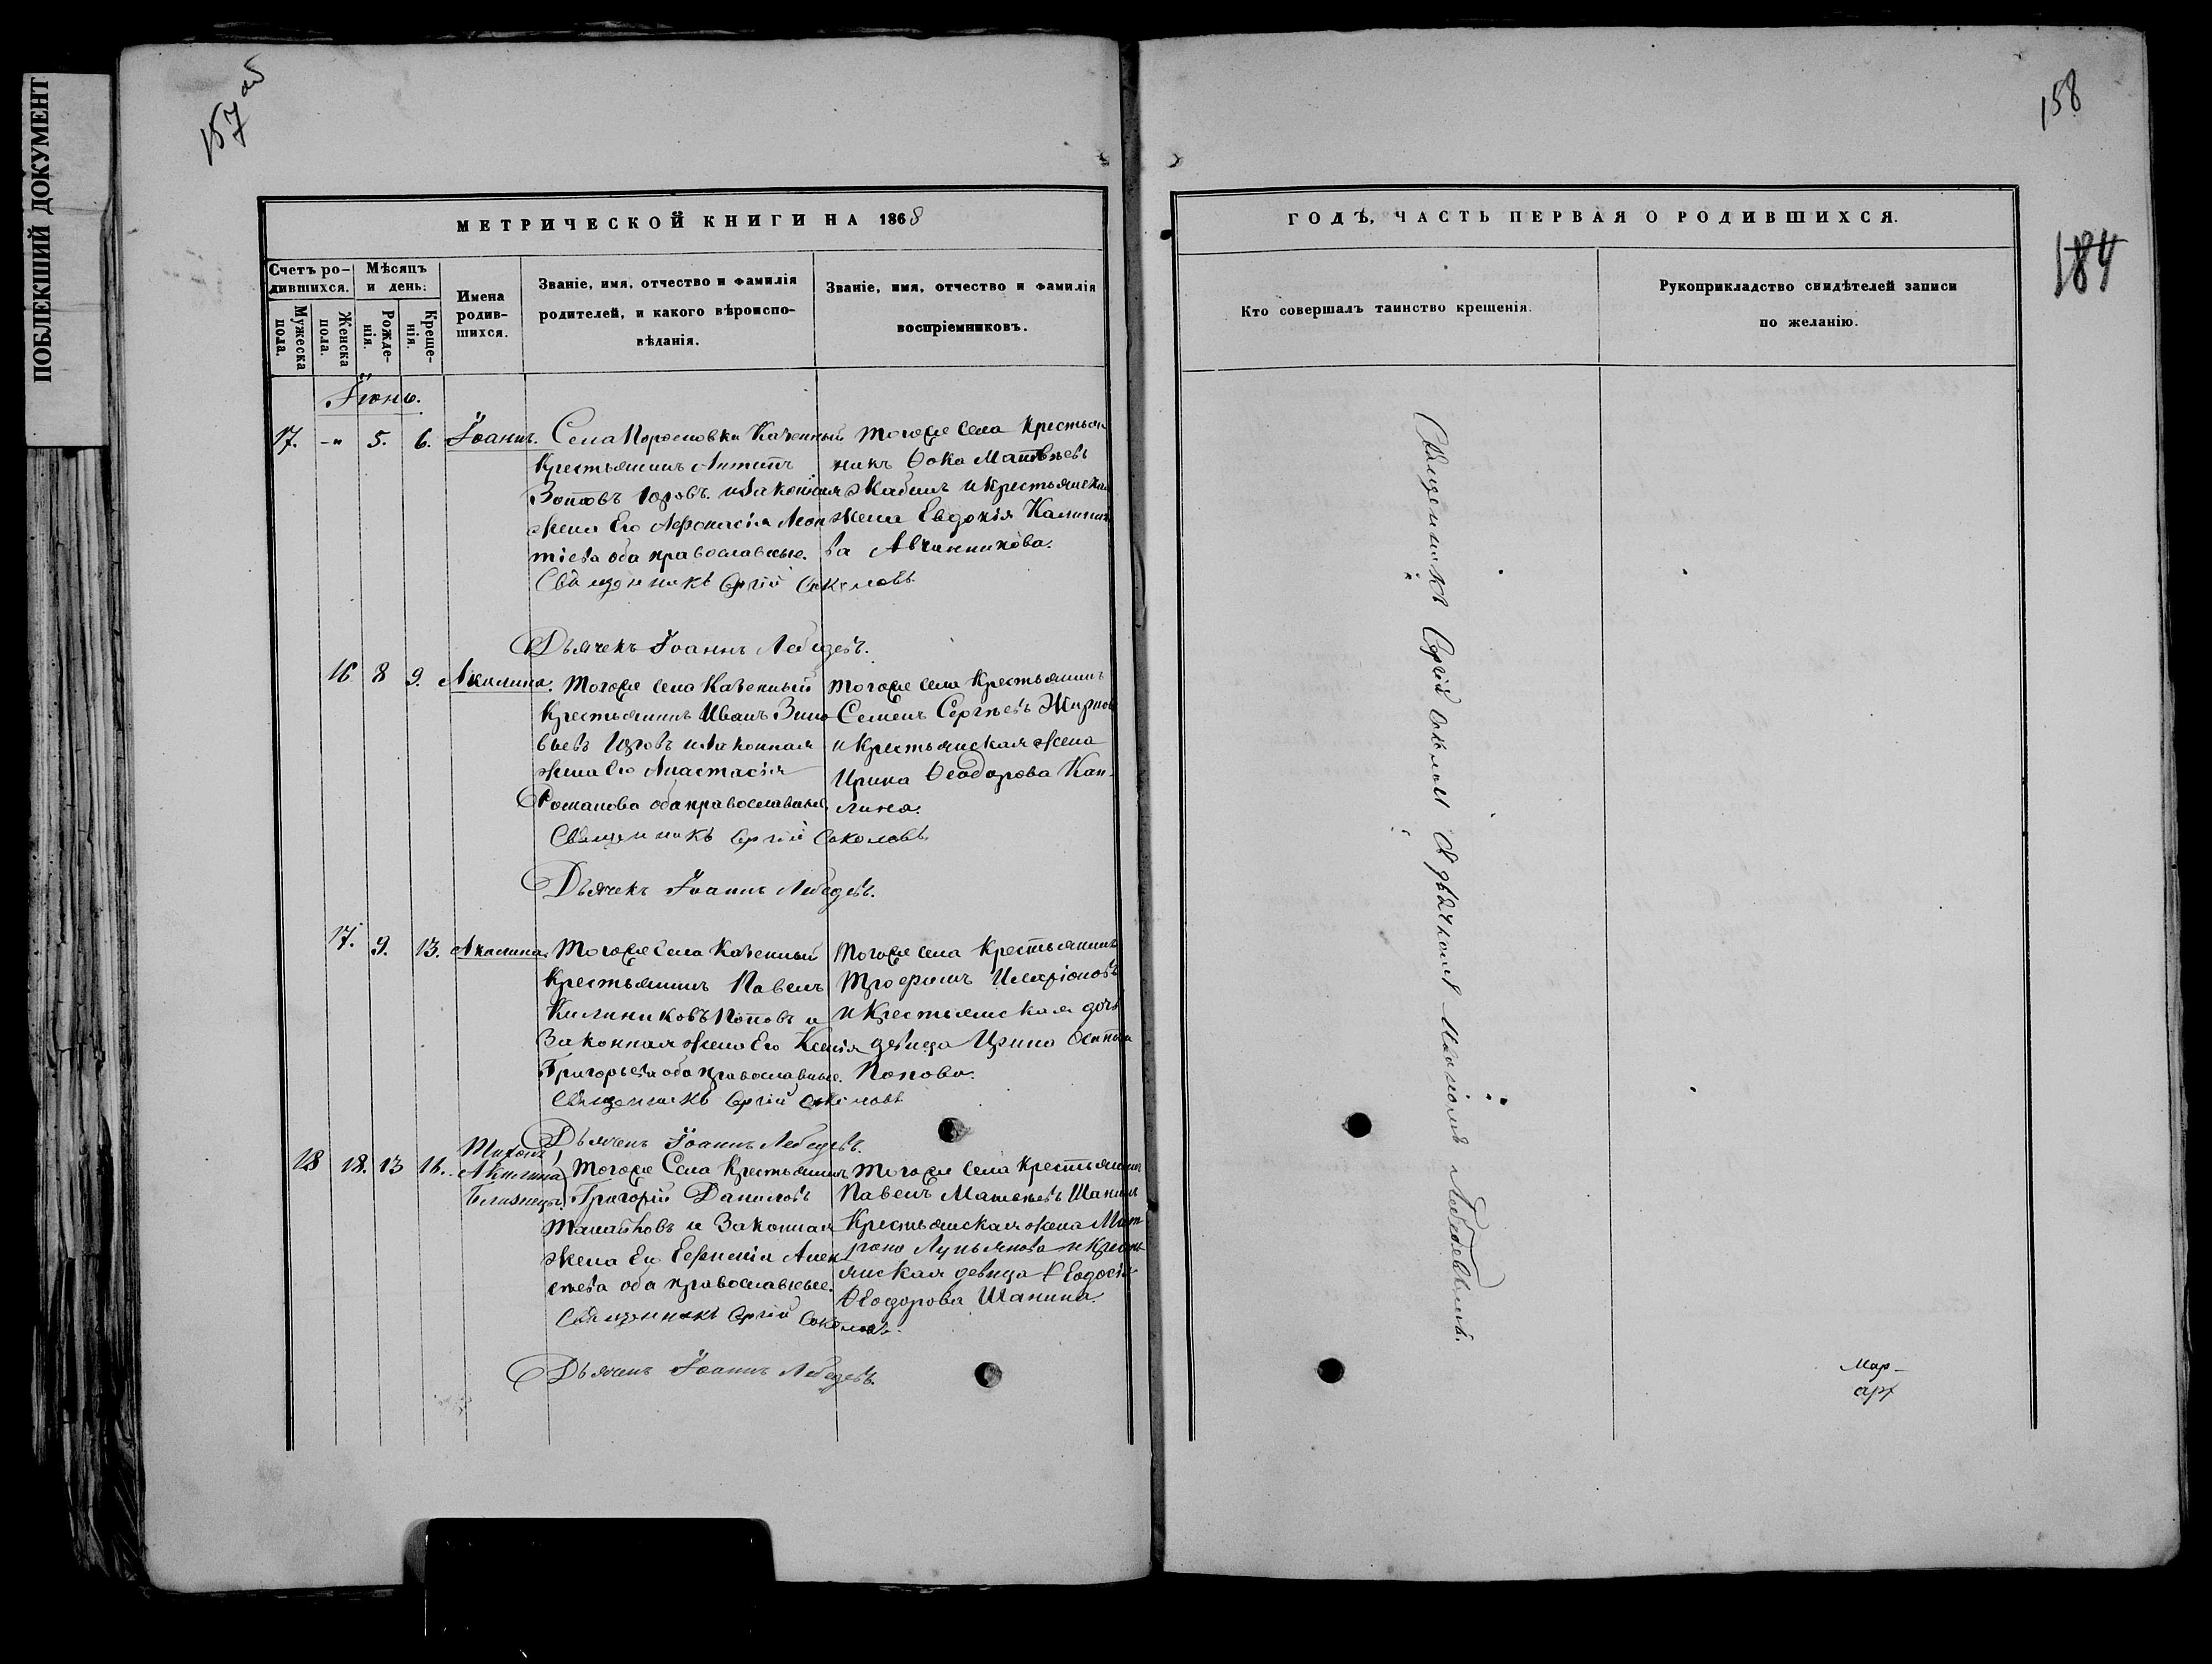 ПОБЛЕКШИЙ ДОКУМЕНТ
157 об
МЕТРИЧЕСКОЙ КНИГИ НА 1868
Счетъ ро-
дившихся.
Мужеска
пола.
Женска
пола.
Мѣсяцъ
и день:
Рожде-
нія.
Креще-
нія.
Имена
родив-
шихся.
Званіе, имя, отчество и фамилія
родителей, и какого вѣроиспо-
вѣданія.
Званіе, имя, отчество и фамилія
воспріемниковъ.
Іюнь.
17. -"- 5. 6. Іоаннъ.
Села Казенный
Крестьянинъ Антипъ
Зотовъ и законная
жена Его Леон
тіева оба православные.
Тогоже Села Крестьян
никъ Ѳока Матвѣевъ
Жабинъ и крестьянская
жена Евдокія Калинин
ва Авчинникова.
Священникъ Сергій Соколовъ
Дьячекъ Іоаннъ Лебедевъ.
16 8 9. Акилина.
Тогоже Села Казенный
Крестьянинъ Иванъ Зино
вьевъ и законная
жена Его Анастасія
Романова оба православные
Тогоже Села Крестьянинъ
Семенъ Сергѣевъ Жирнов
и Крестьянская жена
Ирина Ѳеодорова Кап-
лина.
Священникъ Сергій Соколовъ
Дьячекъ Іоаннъ Лебедевъ.
17. 9. 13. Акилина.
Тогоже Села Казенный
Крестьянинъ Павелъ
Поповъ и
Законная жена Его Ксенія
Григорьева оба православные.
Тогоже Села Крестьянинъ
Иларіоновъ
и Крестьянская дочь
девица Ирина
Попова.
Священникъ Сергій Соколовъ
Дьячекъ Іоаннъ Лебедевъ.
18 18. 13 16.
Тихонъ,
Акилина
Близнецы.
Тогоже Села Крестьянинъ
Григорій Даниловъ
и Законная
жена Его Евфимія Алек
сеева оба православные.
Тогоже Села Крестьянинъ
Павелъ Матвѣевъ Шанинъ
Крестьянская жена Мат
рона Лукьянова и Кресть
янская девица Ѳеодосія
Ѳеодорова Шанина.
Священникъ Сергій Соколовъ.
Дьячекъ Іоаннъ Лебедевъ.
158
184
ГОДЪ, ЧАСТЬ ПЕРВАЯ О РОДИВШИХСЯ.
Кто совершалъ таинство крещенія.
Рукоприкладство свидѣтелей записи
по желанію.
Священникъ Сергій Соколовъ съ дьячкомъ Іоанномъ Лебедевымъ.